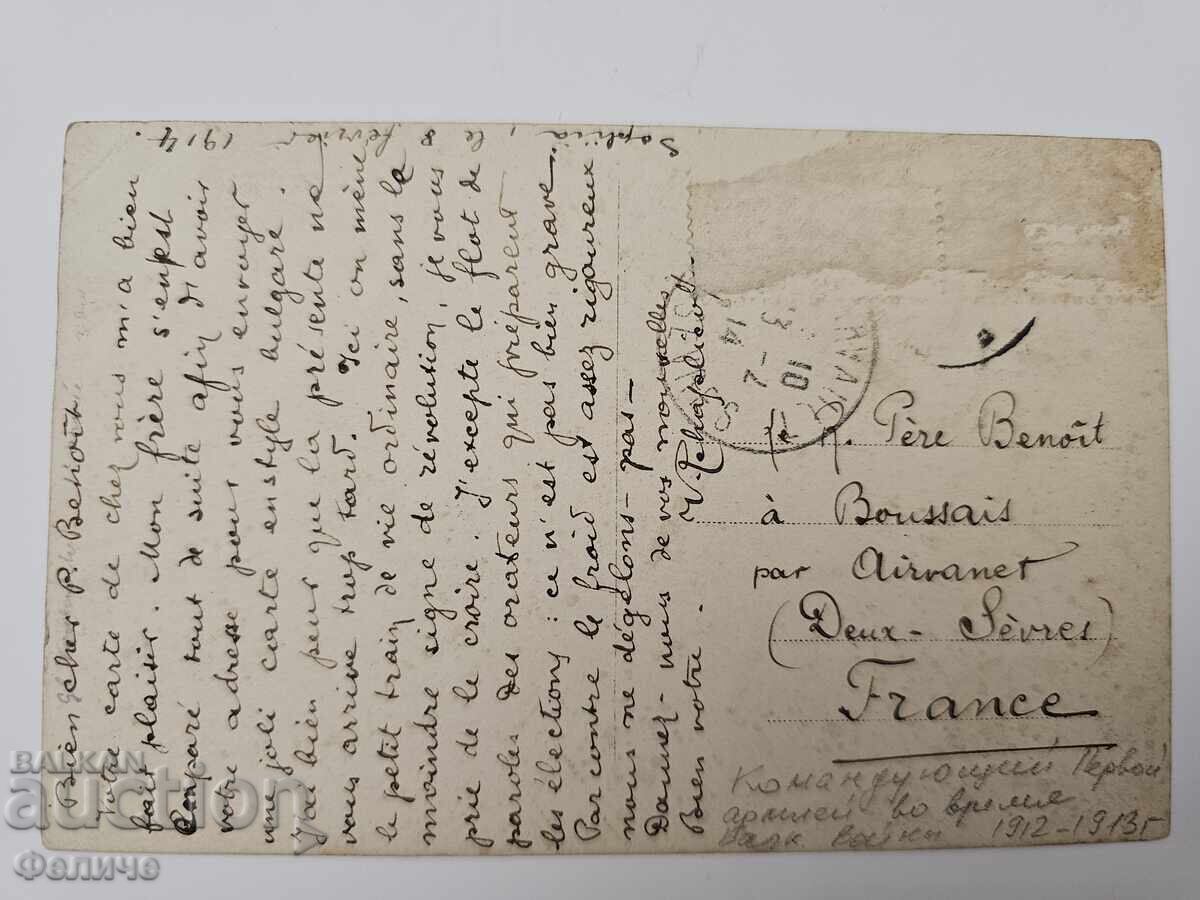 Sophia, le 8 février 1914.
Bien cher P. Benoît.
Votre carte de chez vous m'a bien
fait plaisir. Mon frère s'en est
emparé tout de suite afin d'avoir
votre adresse pour vous envoyer
une joli carte en style bulgare.
J'ai bien peur que la présente ne
vous arrive trop tard. Ici on mène
le petit train de vie ordinaire, sans la
moindre signe de révolution, je vous
prie de le croire. J'excepte le flot de
paroles des orateurs qui préparent
les élections: ce n'est pas bien grave.
Par contre le froid est assez rigoureux
nous ne dégelons-pas-
Donnez-nous de vos nouvelles.
Bien votre.
AIRVAULT
10
7-3
14
SÈVRES
R. P. Père Benoît
à Boussais
par Airvanet
(Deux-Sèvres)
France
Командующий Первой
армией во время
Балк войны 1912-1913г
BALKAN
auction
Феличе